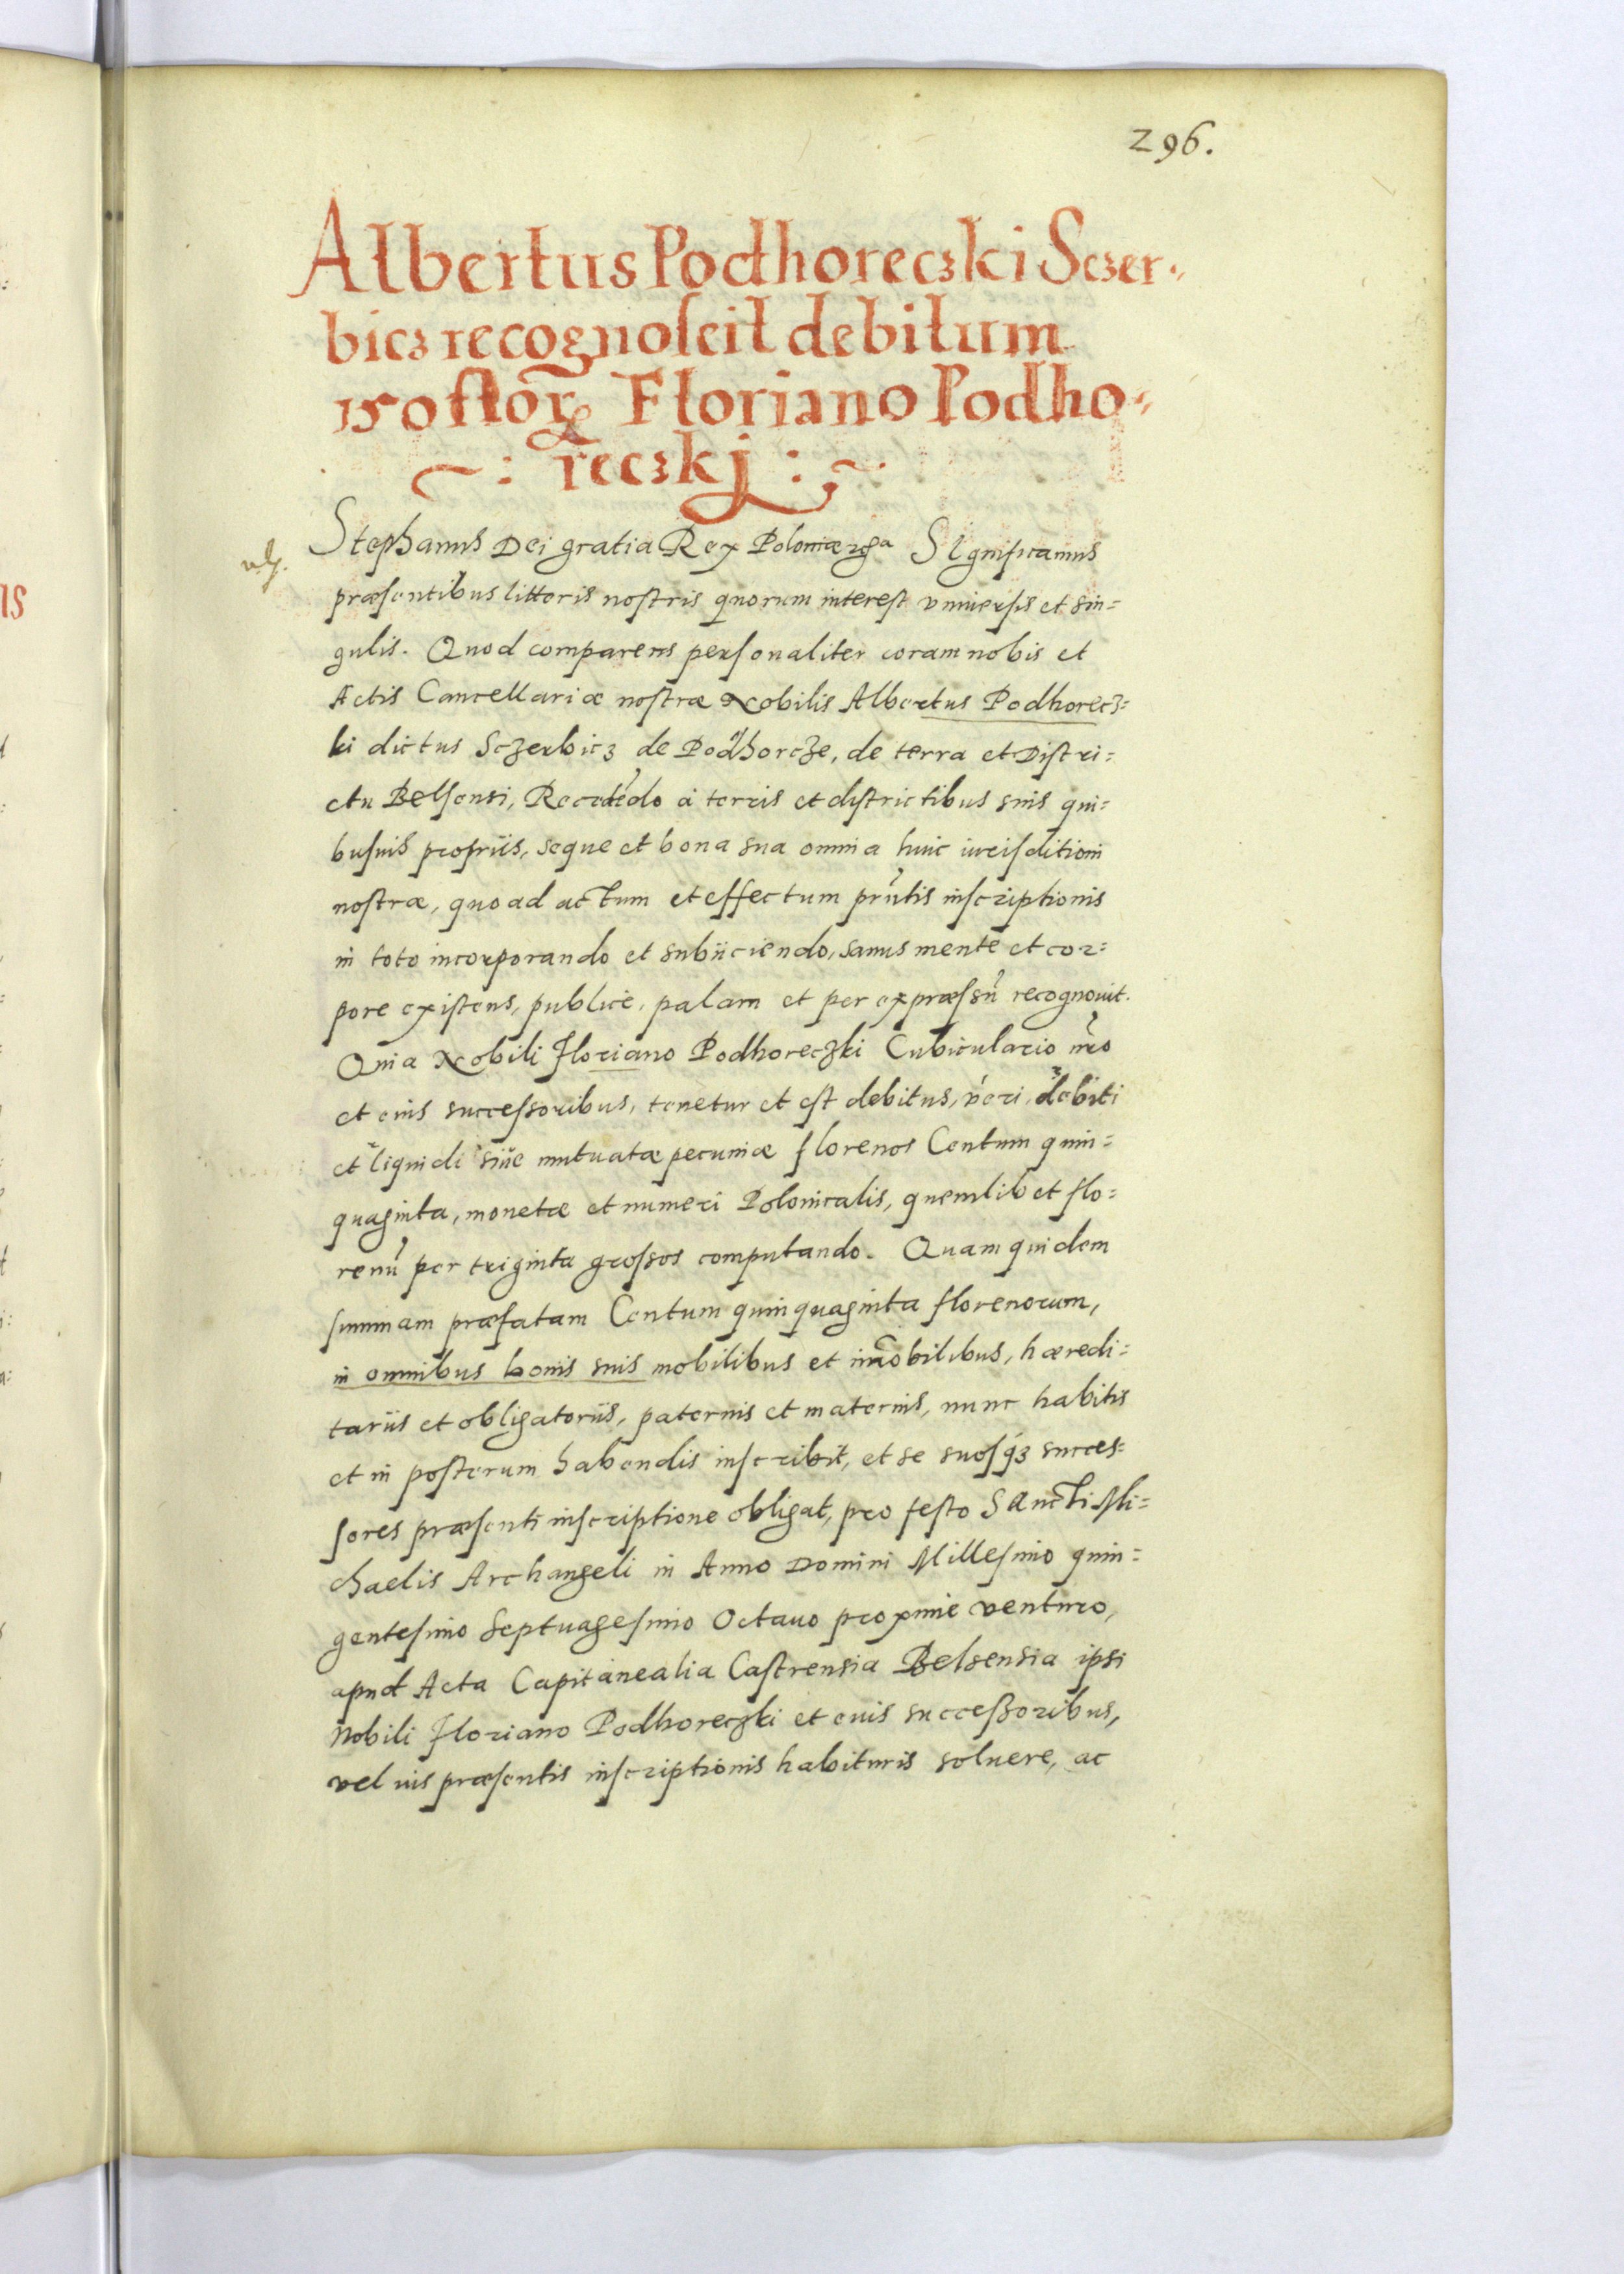 296.
Albertus Podhoreczki Sczer-
bicz recognoscit debitum
150 flor Floriano Podho-
reczkj
Stephanus Dei gratia Rex Poloniæ Significamus
præsentibus litteris nostris quorum interest vniuersis et sin=
gulis. Quod comparens personaliter coram nobis et
Actis Cancellariæ nostræ Nobilis Albertus Podhorecz=
ki dictus Sczerbicz de Podhorcze, de terra et Distri=
ctu Belsensi, Recedẽdo à terris et districtibus suis qui=
busuis proprijs, seque et bona sua omnia huic iurisditioni
nostræ, quo ad actum et effectum pñtis inscriptionis
in toto incorporando et subijciendo, sanus mente et cor=
pore existens, publicè, palam et per expræssũ recognouit.
Quia Nobili Floriano Podhoreczki Cubiculario nr̃o
et eius successoribus, tenetur et est debitus, veri, debiti
et liquidi siue mutuatæ pecuniæ florenos Centum quin=
quaginta, monetæ et numeri Polonicalis, quemlibet flo=
renũ per triginta grossos computando. Quam quidem
summam præfatam Centum quinquaginta florenorum,
in omnibus bonis suis mobilibus et im̃obilibus, hæredi=
tarijs et obligatorijs, paternis et maternis, nunc habitis
et in posterum habendis inscribit, et se suosqz succes=
sores præsenti inscriptione obligat, pro festo Sancti Mi=
chaelis Archangeli in Anno Domini Millesimo quin=
gentesimo Septuagesimo Octauo proximè venturo,
apud Acta Capitanealia Castrensia Belsensia ipsi
Nobili Floriano Podhoreczki et euis successoribus,
vel uis præsentis inscriptionis habituris soluere, ac